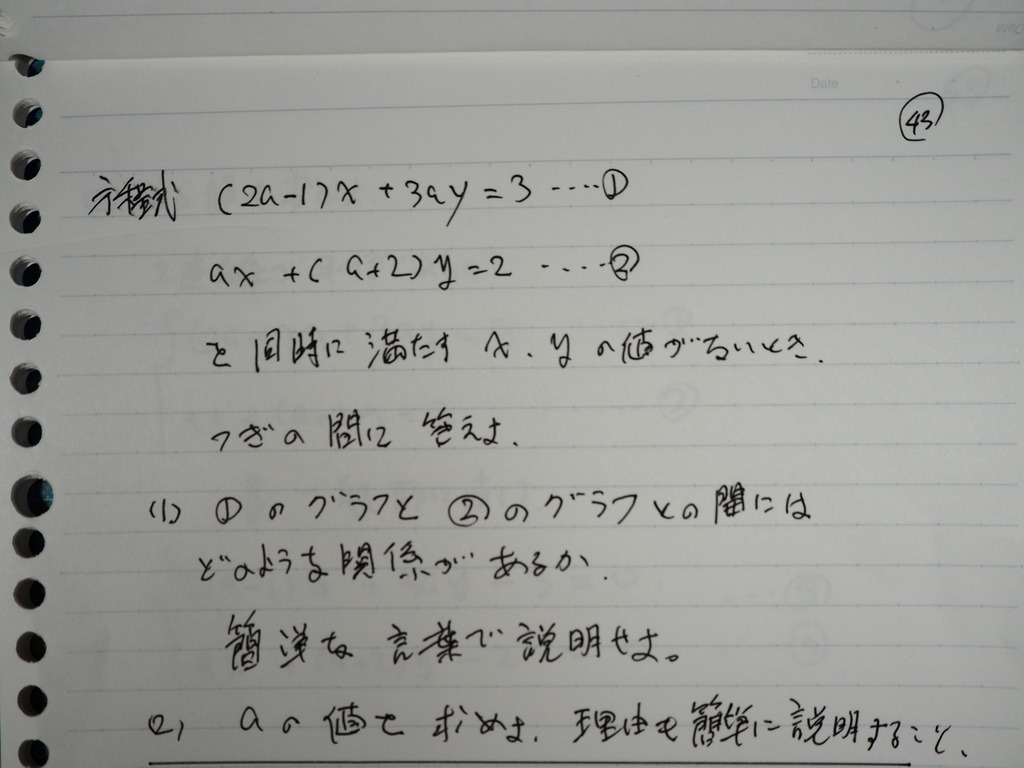 Date
43
方程式 (2a-1)x+3ay=3 ‥‥①
ax+(a+2)y=2 ‥‥②
を同時に満たす x、yの値がないとき、
つぎの問に答えよ、
(1) ①のグラフと②のグラフとの間には
どのような関係があるか、
簡単な言葉で説明せよ。
(2) aの値を求めよ、理由も簡単に説明すること、